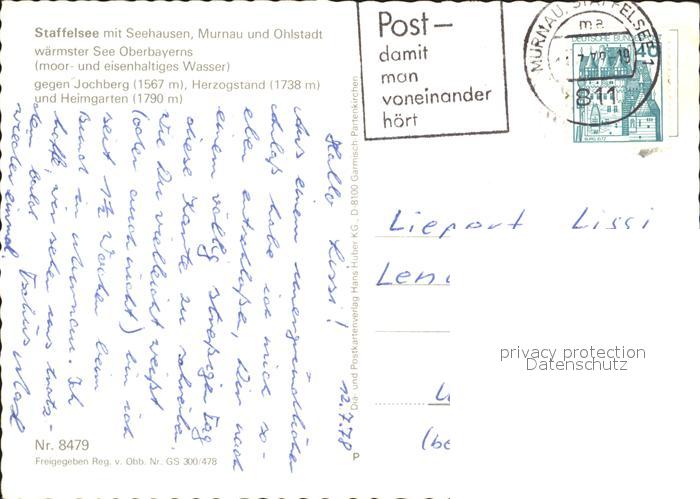 Staffelsee mit Seehausen, Murnau und Ohlstadt
wärmster See Oberbayerns
(moor- und eisenhaltiges Wasser)
gegen Jochberg (1567 m), Herzogstand (1738 m)
und Heimgarten (1790 m)
Post-
damit
man
voneinander
hört
MURNAU, STAFFELSEE 1
ma
811
DEUTSCHE BUNDESPOST
40
BURG ELTZ
12.7.78
Hallo Lissi!
Aus einem
Anlaß habe ich mich so-
eben entschlossen, Dir nach
einem völlig Tag
diese Karte zu schreiben.
Wie Du vielleicht weißt
(oder auch nicht) bin ich
seit 1½ Wochen beim
Bund in Murnau. Ich
hoffe, wir sehen uns trotz-
dem bald
wieder einmal Tschüs
Dia- und Postkartenverlag Hans Huber KG., D-8100 Garmisch-Partenkirchen
Liepart Lissi
privacy protection
Datenschutz
(be
Nr. 8479
Freigegeben Reg. v. Obb. Nr. GS 300/478
P